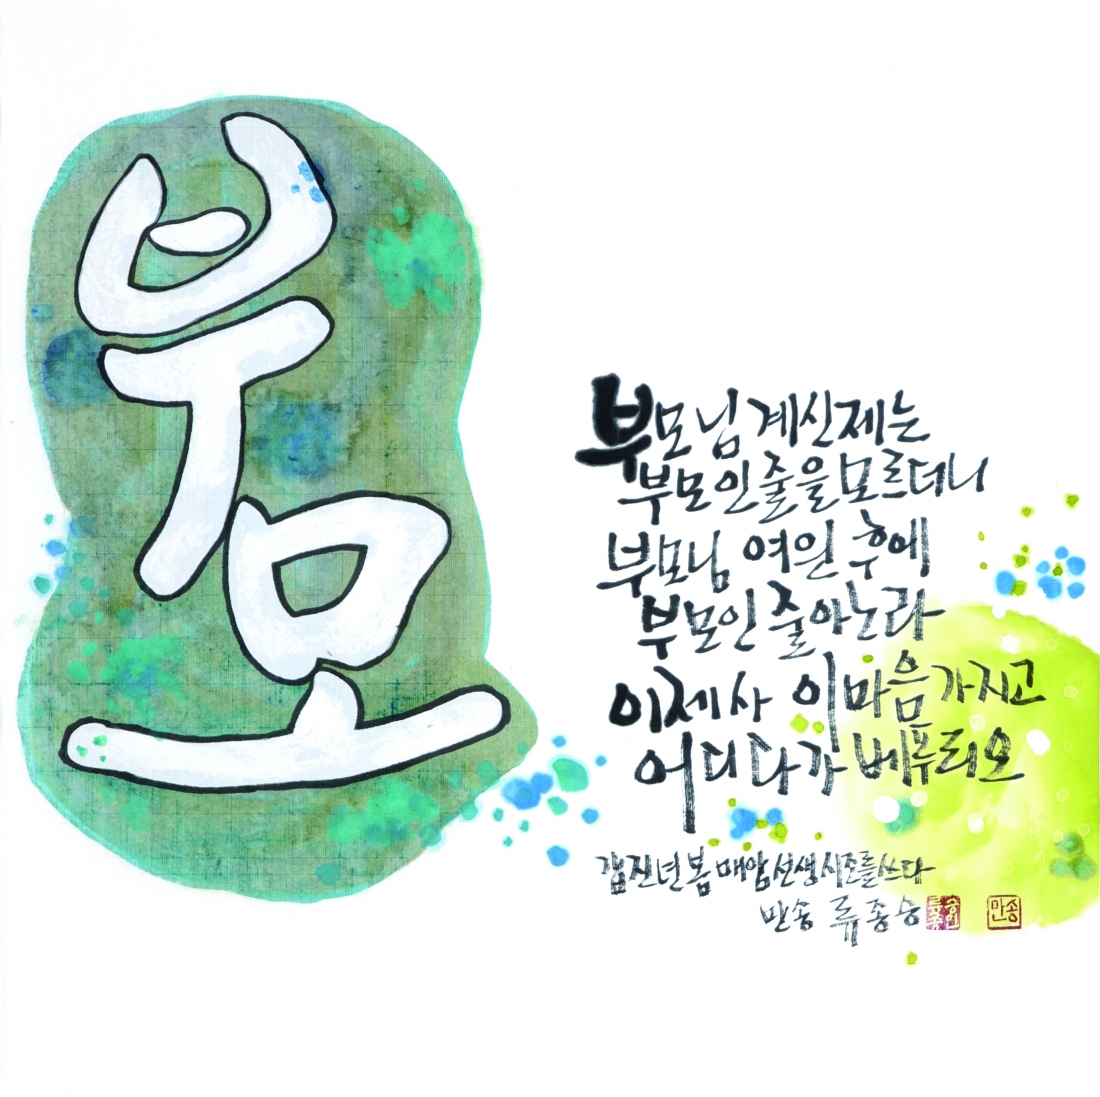 부모
부모님 계신제는
부모인줄을 모르더니
부모님 여읜 후에
부모인 줄 아노라
이제사 이 마음 가지고
어디다가 베푸리오
갑진년 봄 매암선생 시조를 쓰다
만송 류종승
만송